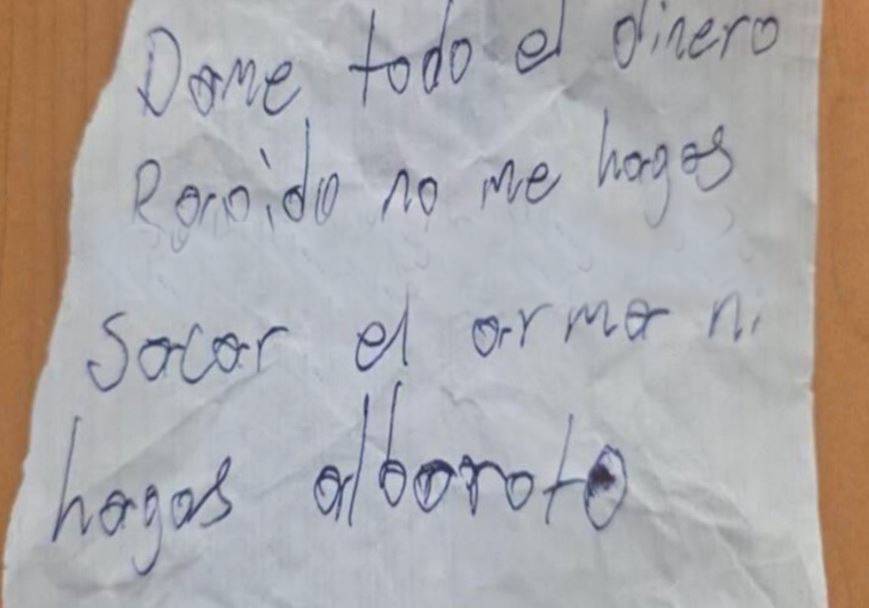 Dame todo el dinero
Rapido no me hagas
Sacar el arma ni
hagas alboroto